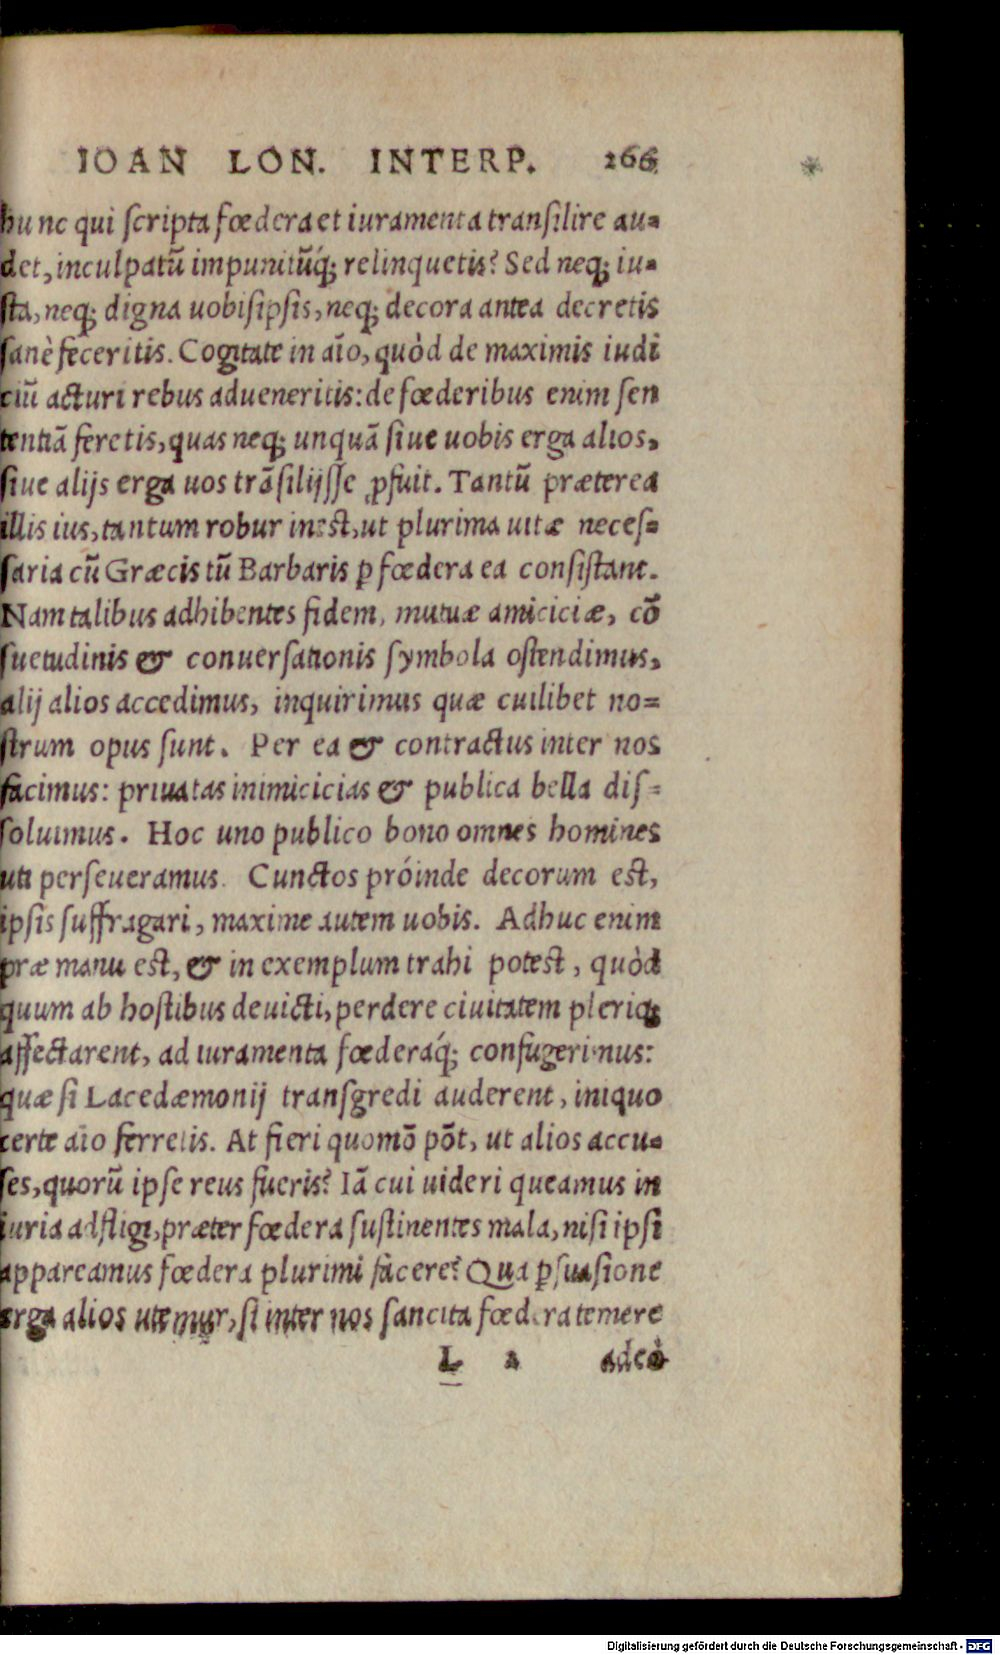 IOAN LON. INTERP. 266
hunc qui scripta fœdera et iuramenta transilire au=
det, inculpatũ impunitũq́; relinquetis? Sed neq; iu=
sta, neq; digna uobisipsis, neq; decora antea decretis
sanè feceritis. Cogitate in aĩo, quòd de maximis iudi
ciũ acturi rebus adueneritis: de fœderibus enim sen
tentiã feretis, quas neq; unquã siue uobis erga alios,
siue alijs erga uos trãsilijsse ꝓfuit. Tantũ præterea
illis ius, tantum robur inest, ut plurima uitæ neces=
saria cũ Græcis tũ Barbaris ꝑ fœdera ea consistant.
Nam talibus adhibentes fidem, mutuæ amiciciæ, cõ
suetudinis & conuersationis symbola ostendimus,
alij alios accedimus, inquirimus quæ cuilibet no=
strum opus sunt. Per ea & contractus inter nos
facimus: priuatas inimicicias & publica bella dis=
soluimus. Hoc uno publico bono omnes homines
uti perseueramus. Cunctos próinde decorum est,
ipsis suffragari, maxime autem uobis. Adhuc enim
præ manu est, & in exemplum trahi potest, quòd
quum ab hostibus deuicti, perdere ciuitatem pleriq;
affectarent, ad iuramenta fœderaq́; confugerimus:
quæ si Lacedæmonij transgredi auderent, iniquo
certe aĩo ferretis. At fieri quomõ põt, ut alios accu=
ses, quorũ ipse reus fueris? Iã cui uideri queamus in
iuria adfligi, præter fœdera sustinentes mala, nisi ipsi
appareamus fœdera plurimi facere? Qua ꝑsuasione
erga alios utemur, si inter nos sancita fœdera temere
L 2 adeò
Digitalisierung gefördert durch die Deutsche Forschungsgemeinschaft - DFG